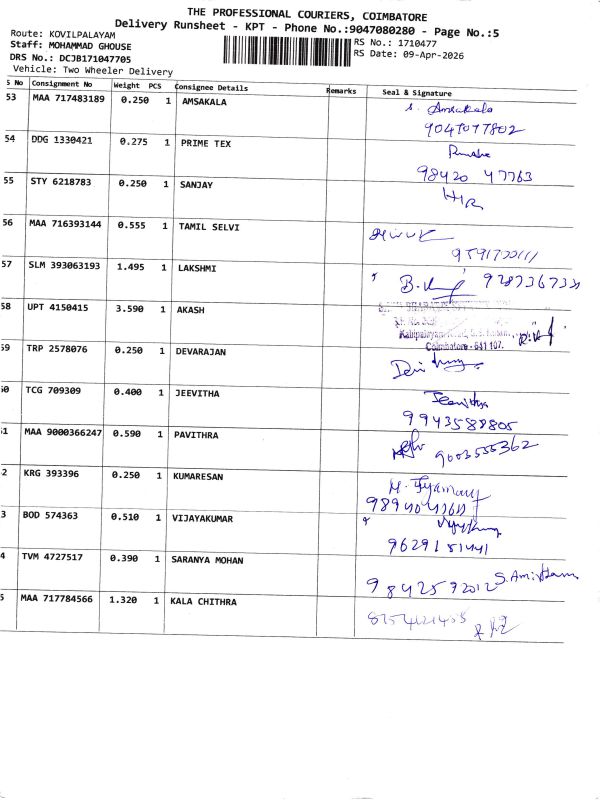 THE PROFESSIONAL COURIERS, COIMBATORE
Delivery Runsheet - KPT - Phone No.:9047080280 - Page No.:5
Route: KOVILPALAYAM
Staff: MOHAMMAD GHOUSE RS No.: 1710477
DRS No.: DCJB171047705 RS Date: 09-Apr-2026
Vehicle: Two Wheeler Delivery
S No Consignment No Weight PCS Consignee Details Remarks Seal & Signature
53 MAA 717483189 0.250 1 AMSAKALA S. Amsakala
9047077802
54 DDG 1330421 0.275 1 PRIME TEX
98420 47763
55 STY 6218783 0.250 1 SANJAY
56 MAA 716393144 0.555 1 TAMIL SELVI
57 SLM 393063193 1.495 1 LAKSHMI
58 UPT 4150415 3.590 1 AKASH
Coimbatore - 641 107.
59 TRP 2578076 0.250 1 DEVARAJAN
60 TCG 709309 0.400 1 JEEVITHA Jeevitha
9943588805
61 MAA 9000366247 0.590 1 PAVITHRA 9003555362
2 KRG 393396 0.250 1 KUMARESAN
3 BOD 574363 0.510 1 VIJAYAKUMAR
9629151441
4 TVM 4727517 0.390 1 SARANYA MOHAN
9842592012
5 MAA 717784566 1.320 1 KALA CHITHRA